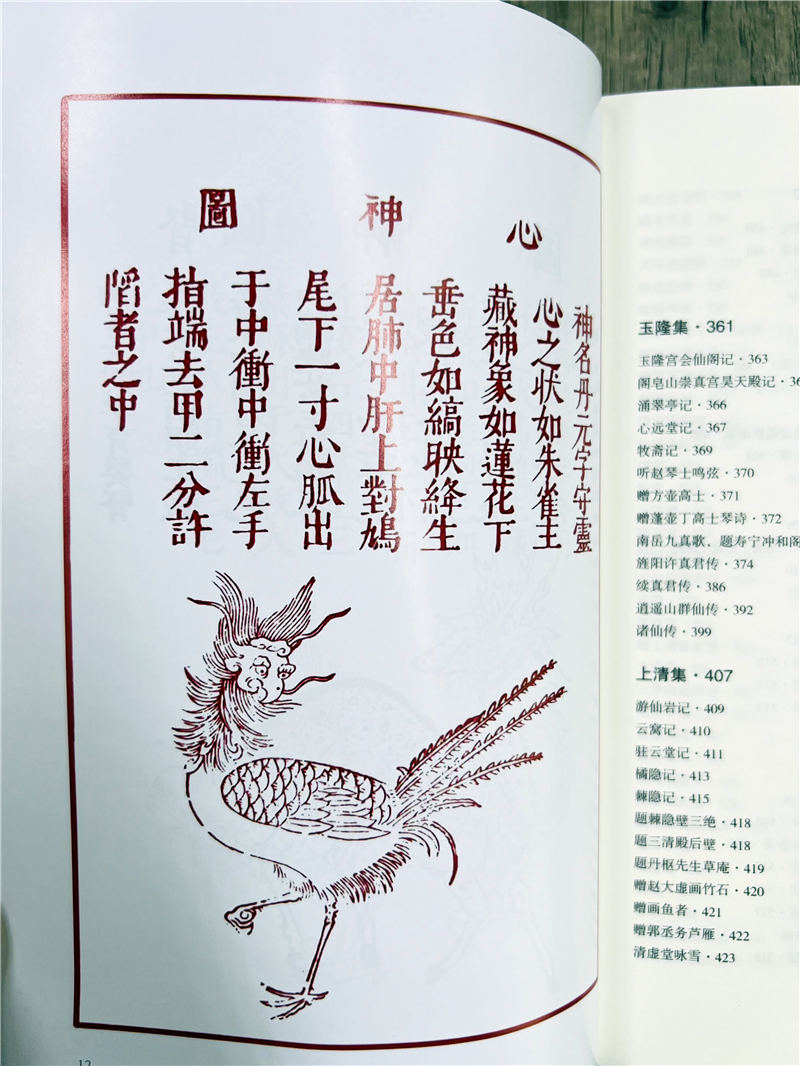 心神圖
神名丹元字守靈
心之状如朱雀主
藏神象如蓮花下
垂色如縞映絳生
居肺中肝上對鳩
尾下一寸心脈出
于中衝中衝左手
指端去甲二分許
陷者之中
12
玉隆集·361
玉隆宫会仙阁记·363
阁皂山崇真宫昊天殿记·36
涌翠亭记·366
心远堂记·367
牧斋记·369
听赵琴士鸣弦·370
赠方壶高士·371
赠蓬壶丁高士琴诗·372
南岳九真歌、题寿宁冲和阁
旌阳许真君传·374
续真君传·386
逍遥山群仙传·392
诸仙传·399
上清集·407
游仙岩记·409
云窝记·410
驻云堂记·411
橘隐记·413
棘隐记·415
题棘隐壁三绝·418
题三清殿后壁·418
题丹枢先生草庵·419
赠赵大虚画竹石·420
赠画鱼者·421
赠郭丞务芦雁·422
清虚堂咏雪·423